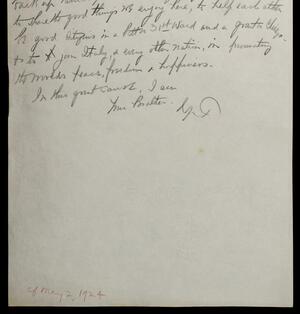 to share the good things we enjoy here, to help each other
be good citizens in a better 31st Ward and a greater Chicago
to join Italy, & every other nation, in promoting
the worlds peace, freedom & happiness.
In this great cause, I am
Your Brother.
cf May 2, 1924